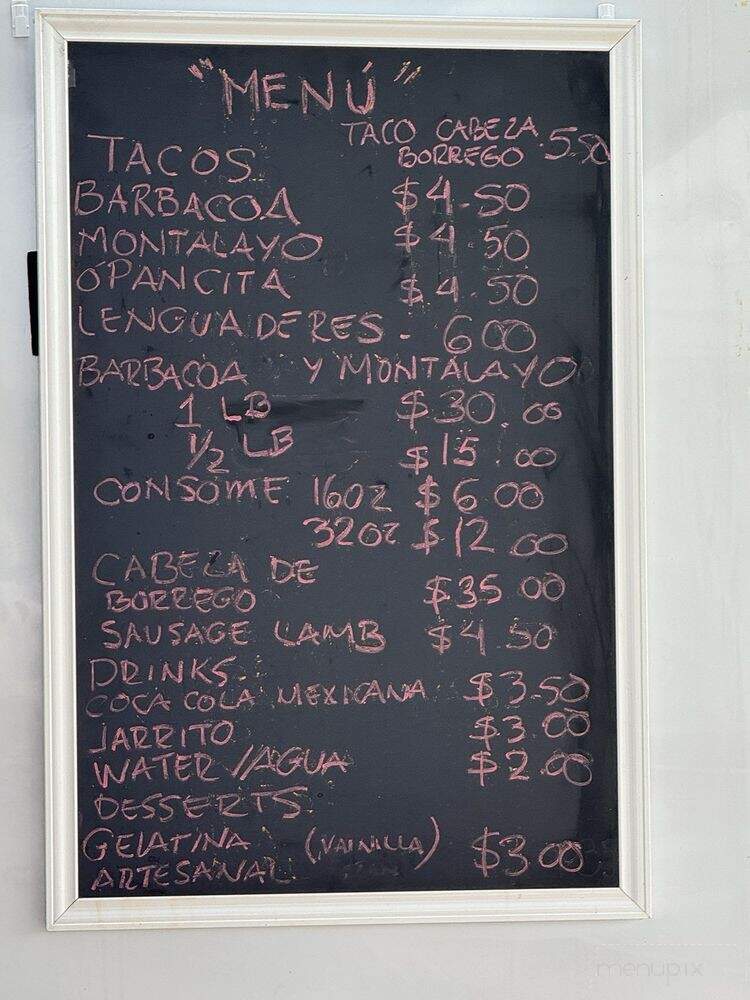 "MENÚ"
TACO CABEZA
BORREGO .5.50
TACOS
BARBACOA $4.50
MONTALAYO $4.50
OPANCITA $4.50
LENGUA DE RES - 600
BARBACOA Y MONTALAYO
1 LB $30.00
1/2 LB $15.00
CONSOME 16OZ $6 00
32OZ $12 00
CABEZA DE
BORREGO $35 00
SAUSAGE LAMB $4.50
DRINKS
COCA COLA MEXICANA $3.50
JARRITO $3.00
WATER //AGUA $2.00
DESSERTS
GELATINA (VAINILLA) $3 00
ARTESANAL
menupix